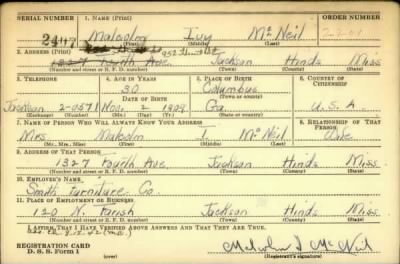 SERIAL NUMBER 1. NAME (Print) ORDER NUMBER
2447 Malcolm Ivy McNeil 2201
(First) (Middle) (Last)
2. ADDRESS (Print)
1327 Fourth Ave. Jackson Hinds Miss
(Number and street or R. F. D. number) (Town) (County) (State)
3. TELEPHONE 4. AGE IN YEARS 5. PLACE OF BIRTH 6. COUNTRY OF CITIZENSHIP
30 Columbus
DATE OF BIRTH (Town or county)
Jackson 2-0571 Nov. 2 1909 Ga. U.S.A.
(Exchange) (Number) (Mo.) (Day) (Yr.) (State or country)
7. NAME OF PERSON WHO WILL ALWAYS KNOW YOUR ADDRESS 8. RELATIONSHIP OF THAT PERSON
Mrs Malcolm I. McNeil Wife
(Mr., Mrs., Miss) (First) (Middle) (Last)
9. ADDRESS OF THAT PERSON
1327 Fourth Ave. Jackson Hinds Miss.
(Number and street or R. F. D. number) (Town) (County) (State)
10. EMPLOYER'S NAME
Smith Furniture Co.
11. PLACE OF EMPLOYMENT OR BUSINESS
120 N. Farish Jackson Hinds Miss.
(Number and street or R. F. D. number) (Town) (County) (State)
I AFFIRM THAT I HAVE VERIFIED ABOVE ANSWERS AND THAT THEY ARE TRUE.
REGISTRATION CARD
D. S. S. Form 1 (over) Malcolm I McNeil
(Registrant's signature)